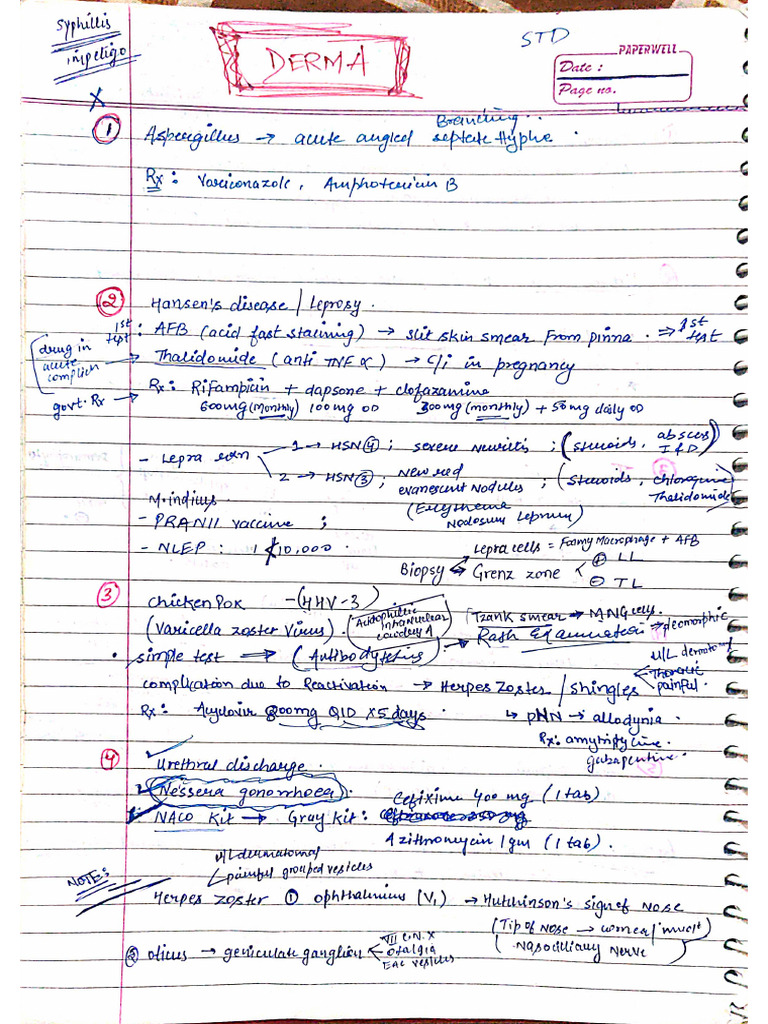 Syphillis
impetigo
STD
DERMA
PAPERWELL
Date :
Page no.
X
Branching
① Aspergillus → acute angled septate Hyphe .
Rx : Variconazole, Amphotericin B
② Hansen's disease / Leprosy .
1st test : AFB (acid fast staining) → slit skin smear from pinna . ⇒ 1st test
drug in acute complicn
Thalidomide (anti TNF α) → C/i in pregnancy
govt. Rx → Rx : Rifampicin + dapsone + clofazamine
600mg (monthly) 100mg OD 300mg (monthly) + 50mg daily OD
- Lepra rxn
1 → HSN ④ ; severe neuritis ; (steroids, abscess I & D)
2 → HSN ③ ; New red evanescent nodules ; (steroids, chloroquine Thalidomide)
(Erythema Nodosum Leprum)
M. indicus
- PRANII vaccine ;
- NLEP : 1 < 10,000 .
Biopsy
Lepra cells = Foamy Macrophage + AFB
Grenz zone < + LL
- TL
③ chickenpox - (HHV-3)
(Varicella zoster Virus) .
Acidophillic intranuclear cowdery A
Tzank smear → MNG cells.
Rash Examination ⇒ pleomorphic
• simple test ⇒ (Antibody testing)
U/L dermatomal
Thoracic
painful .
complication due to Reactivation → Herpes Zoster / Shingles
Rx : Acyclovir 800mg QID x 5 days .
↳ PHN → allodynia .
Rx : amytriptyline .
gabapentine .
④ Urethral discharge .
Nesseria gonorrhoea .
NACO Kit → Gray Kit : Cefixime 400 mg (1 tab)
Azithromycin 1 gm (1 tab) .
NOTE:
U/L dermatomal
painful grouped vesicles
Herpes zoster ① ophthalmicus (V1) → Hutchinson's sign of NOSE
(Tip of Nose → corneal involt
Nasociliary Nerve)
② oticus → geniculate ganglion
VII C.N. X
Otalgia
EAC vesicles